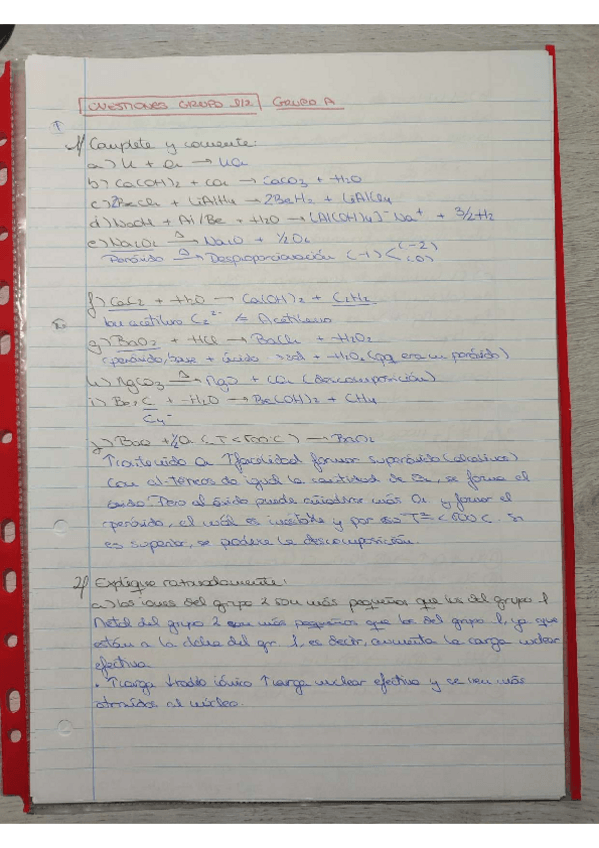 CUESTIONES GRUPO 1/2 GRUPO A
1/ Complete y comente:
a) K + O2 → KO2
b) Ca(OH)2 + CO2 → CaCO3 + H2O
c) 2BeCl2 + LiAlH4 → 2BeH2 + LiAlCl4
d) NaOH + Al/Be + H2O → [Al(OH)4]⁻Na⁺ + 3/2H2
e) Na2O2 →Δ Na2O + 1/2O2
Peróxido →Δ Desproporcionación (-1) < (-2) (0)
f) CaC2 + H2O → Ca(OH)2 + C2H2
C2²⁻ Acetileno
g) BaO2 + HCl → BaCl2 + H2O2
(peróxido/base + ácido → sal + H2O2 (pq era un peróxido)
h) MgCO3 →Δ MgO + CO2 (descomposición)
i) Be2C + H2O → Be(OH)2 + CH4
C4⁻
j) BaO + 1/2O2 (T<500ºC) → BaO2
↑contenido O2 ↑facilidad formar superóxido (alcalinos)
Con al-térreos da igual la cantidad de O2, se forma el
óxido. Pero al óxido puede añadirse más O2 y formar el
peróxido, el cuál es inestable y por eso Tª < 500ºC. Si
es superior, se la descomposición.
2/ Explique razonadamente:
a) Los iones del grupo 2 son más pequeños que los del grupo 1
Metal del grupo 2 son más pequeños que los del grupo 1, ya que
están a la dcha del gr. 1, es decir, aumenta la carga nuclear
efectiva.
• ↑carga ↓radio iónico ↑carga nuclear efectiva y se ven más
atraídos al núcleo.